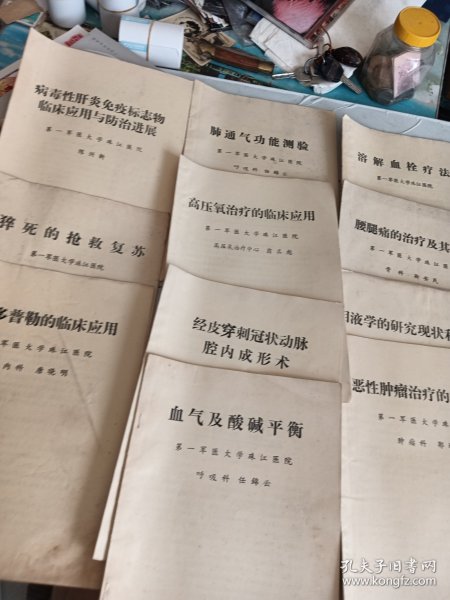 病毒性肝炎免疫标志物
临床应用与防治进展
第一军医大学珠江医院
猝死的抢救复苏
第一军医大学珠江医院
多普勒的临床应用
军医大学珠江医院
内科 唐晓明
肺通气功能测验
第一军医大学珠江医院
呼吸科 任锡云
高压氧治疗的临床应用
第一军医大学珠江医院
高压氧治疗中心
经皮穿刺冠状动脉
腔内成形术
血气及酸碱平衡
第一军医大学珠江医院
呼吸科 任锡云
溶解血栓疗法
第一军医大学珠江医院
腰腿痛的治疗及其
第一军医大学珠江医院
骨科 靳安民
液学的研究现状和
恶性肿瘤治疗的
第一军医大学珠江
肿瘤科
孔夫子旧书网
www.kongfz.com